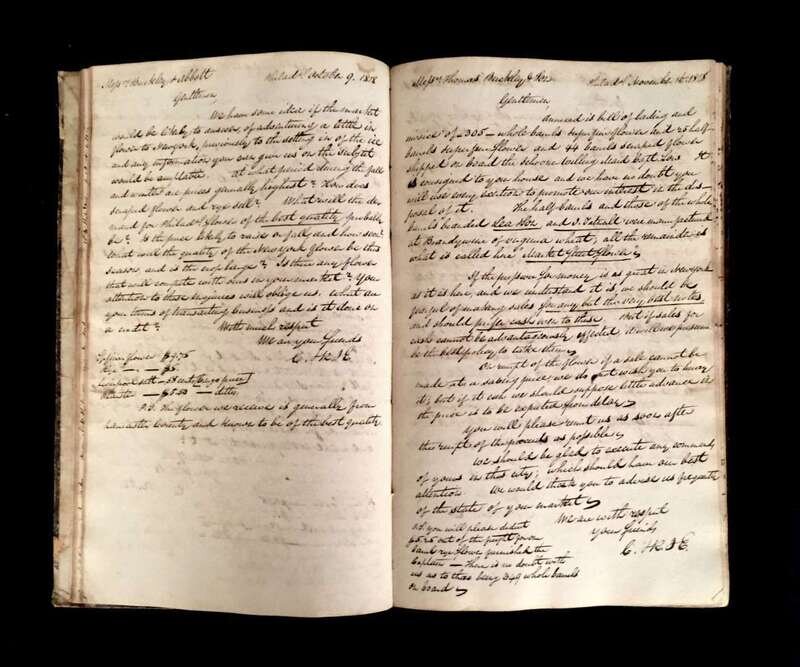 Messrs Buckley & Abbott Philada October 9. 1818
Gentlemen,
We have some idea if the market
would be likely to answer, of adventuring a little in
flower to New York, previously to the setting in of the ice
and any information you can give us on the subject
would be acceptable. At what period during the fall
and winter are prices generally highest? How does
scraped flower and rye sell? What will the de-
mand for Philada flower of the best quality probably
be? Is the price likely to raise or fall and how soon?
What will the quality of the New York flower be this
season and is the crop large? Is there any flower
that will compete with ours in your market? Your
attention to these inquiries will oblige us. What are
your terms of transacting business and is it done on
a credit? With much respect
We are your friends
C. & I E.
Superfine flower $9.75
Rye — — $5
$5.50 — ditto
P.S. The flower we receive is generally from
Lancaster County and known to be of the best quality
Messrs Thomas Buckley & Son Philada November 16. 1818
Gentlemen
Annexed is bill of lading and
invoice of 305 whole barrels superfine flower and 25 half
barrels superfine flower and 44 barrels scraped flower
shipped on board the schooner
is consigned to your house and we have no doubt you
will use every exertion to promote our interest in the dis-
posal of it. The half barrels and those of the whole
barrels branded Lea & Son and J. Tatnall were manufactured
at Brandywine of virginia wheat; all the remainder is
what is called here Market Street flower
If the pressure for money is as great in New York
as it is here, and we understand it is, we should be
fearful of making sales for any but the very best notes
and should prefer cash even to these. But if sales for
cash cannot be advantageously effected, it will we presume
be the best policy to take them
On receipt of the flower if a sale cannot be
made at a saving price, we do not wish you to hurry
it; but if it can we should suppose little advance in
the price is to be expected from delay
You will please remit us as soon after
the receipt of the proceeds as possible
We should be glad to execute any commands
of yours in this city, which should have our best
attention We would thank you to advise us frequently
of the state of your market
We are with respect
your friends
C. & I E.
you will please deduct
out of the freight for one
barrel rye flower furnished the
Captain — There is no doubt with
us as to there being 349 whole barrels
on board